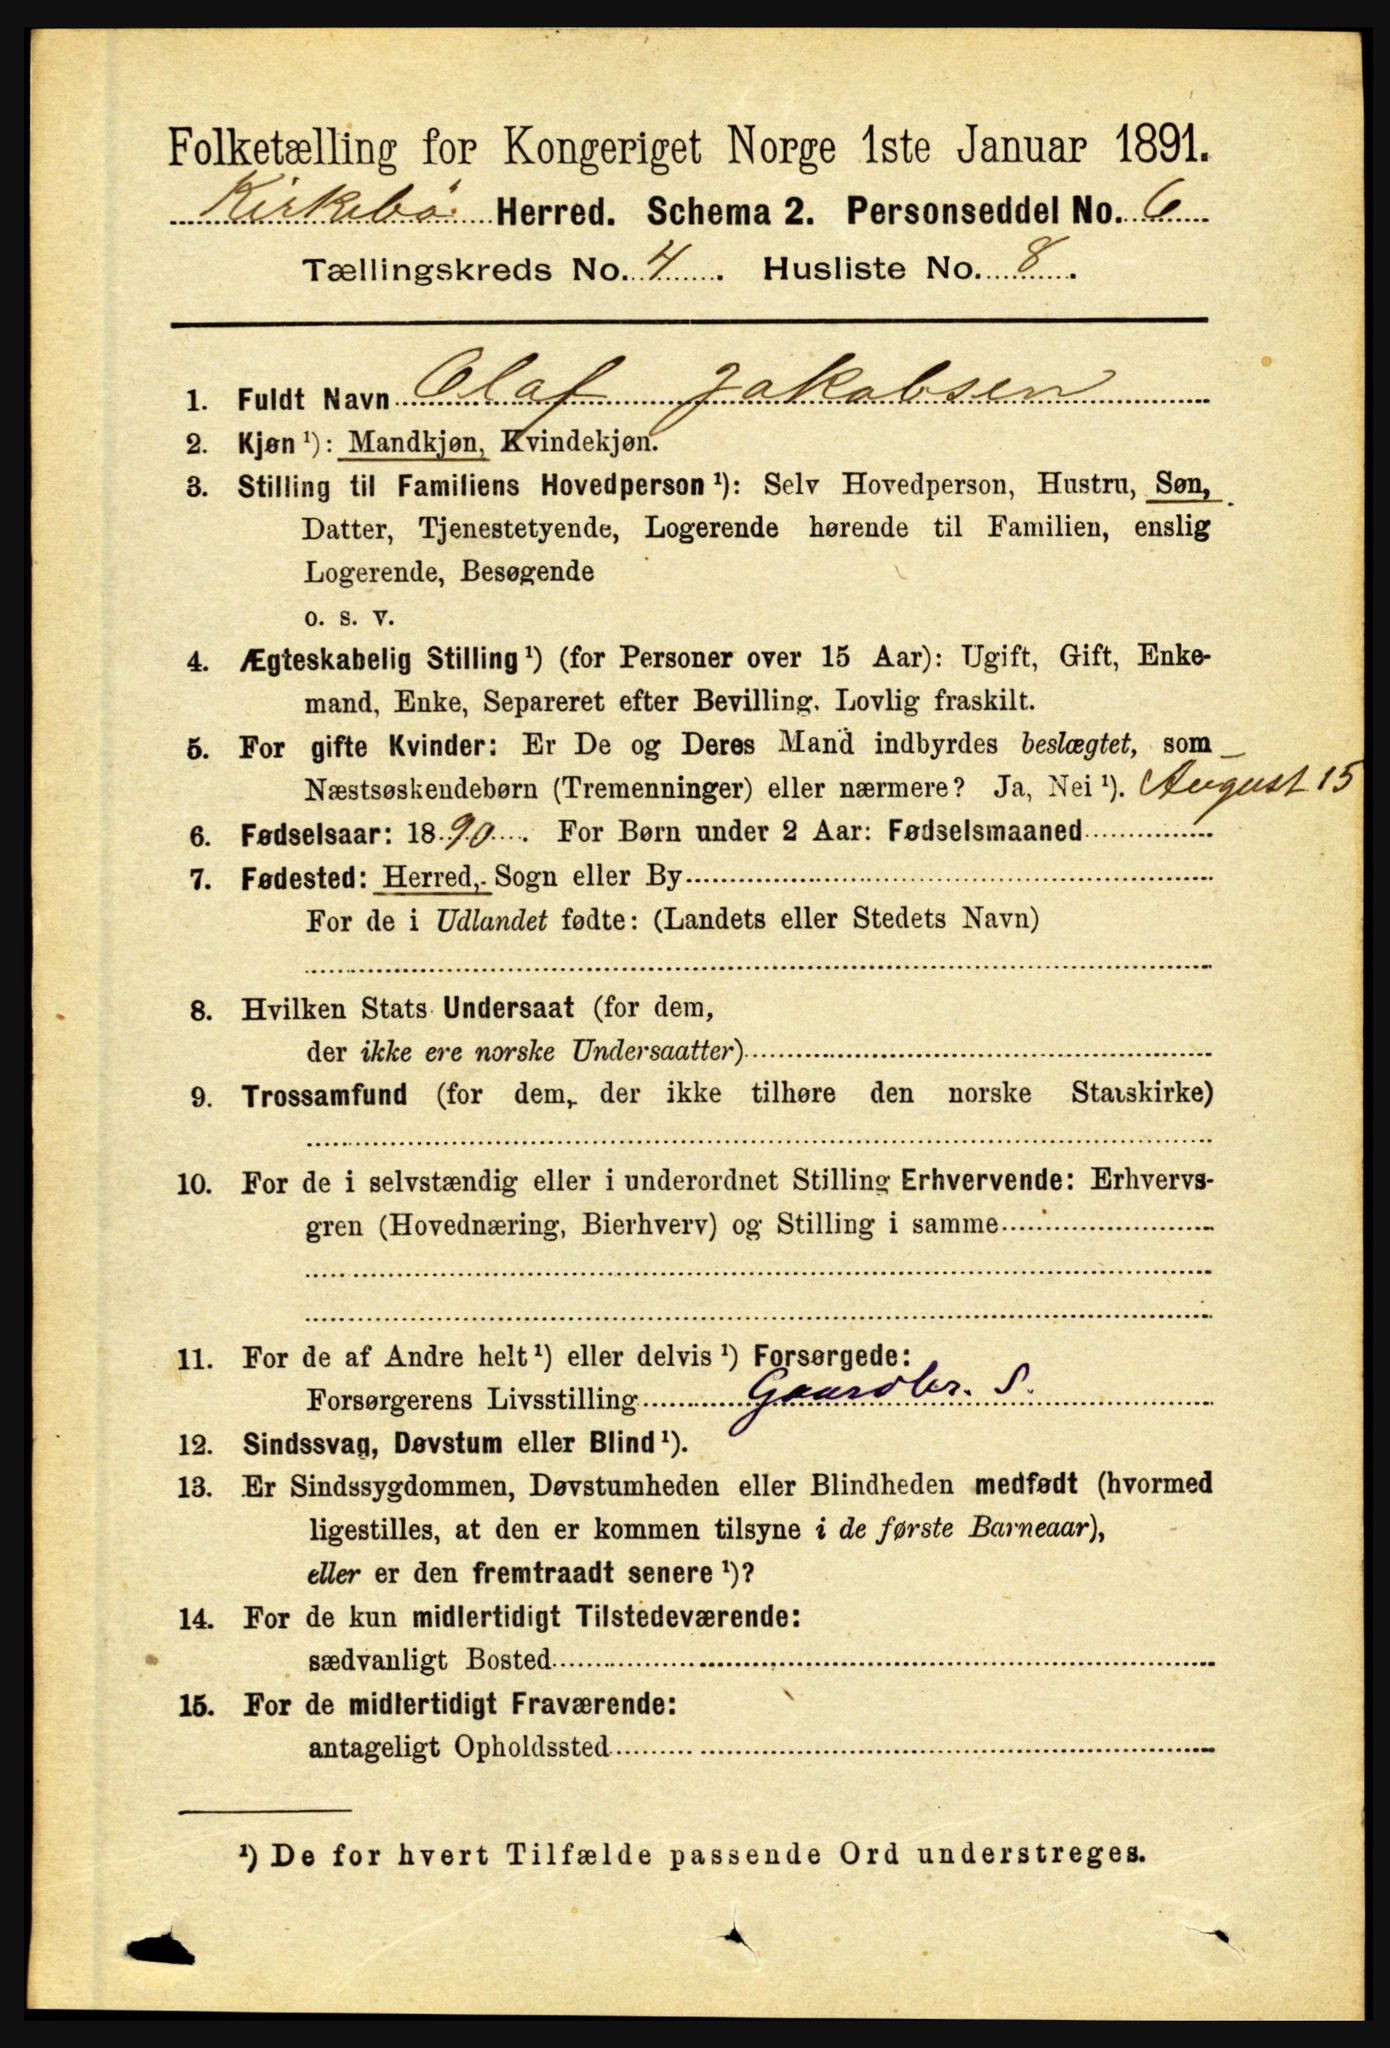 Folketælling for Kongeriget Norge 1ste Januar 1891.
Kirkebö Herred. Schema 2. Personseddel No. 6
Tællingskreds No. 4. Husliste No. 8.
1. Fuldt Navn Olaf Jakobsen
2. Kjøn ¹): Mandkjøn, Kvindekjøn.
3. Stilling til Familiens Hovedperson ¹): Selv Hovedperson, Hustru, Søn,
Datter, Tjenestetyende, Logerende hørende til Familien, enslig
Logerende, Besøgende
o. s. v.
4. Ægteskabelig Stilling ¹) (for Personer over 15 Aar): Ugift, Gift, Enke-
mand, Enke, Separeret efter Bevilling. Lovlig fraskilt.
5. For gifte Kvinder: Er De og Deres Mand indbyrdes beslægtet, som
Næstsøskendebørn (Tremenninger) eller nærmere? Ja, Nei ¹). August 15
6. Fødselsaar: 1890. For Børn under 2 Aar: Fødselsmaaned
7. Fødested: Herred, Sogn eller By
For de i Udlandet fødte: (Landets eller Stedets Navn)
8. Hvilken Stats Undersaat (for dem,
der ikke ere norske Undersaatter)
9. Trossamfund (for dem, der ikke tilhøre den norske Statskirke)
10. For de i selvstændig eller i underordnet Stilling Erhvervende: Erhvervs-
gren (Hovednæring, Bierhverv) og Stilling i samme
11. For de af Andre helt ¹) eller delvis ¹) Forsørgede:
Forsørgerens Livsstilling Gaardbr. S.
12. Sindssvag, Døvstum eller Blind ¹).
13. Er Sindssygdommen, Døvstumheden eller Blindheden medfødt (hvormed
ligestilles, at den er kommen tilsyne i de første Barneaar),
eller er den fremtraadt senere ¹)?
14. For de kun midlertidigt Tilstedeværende:
sædvanligt Bosted
15. For de midlertidigt Fraværende:
antageligt Opholdssted
¹) De for hvert Tilfælde passende Ord understreges.